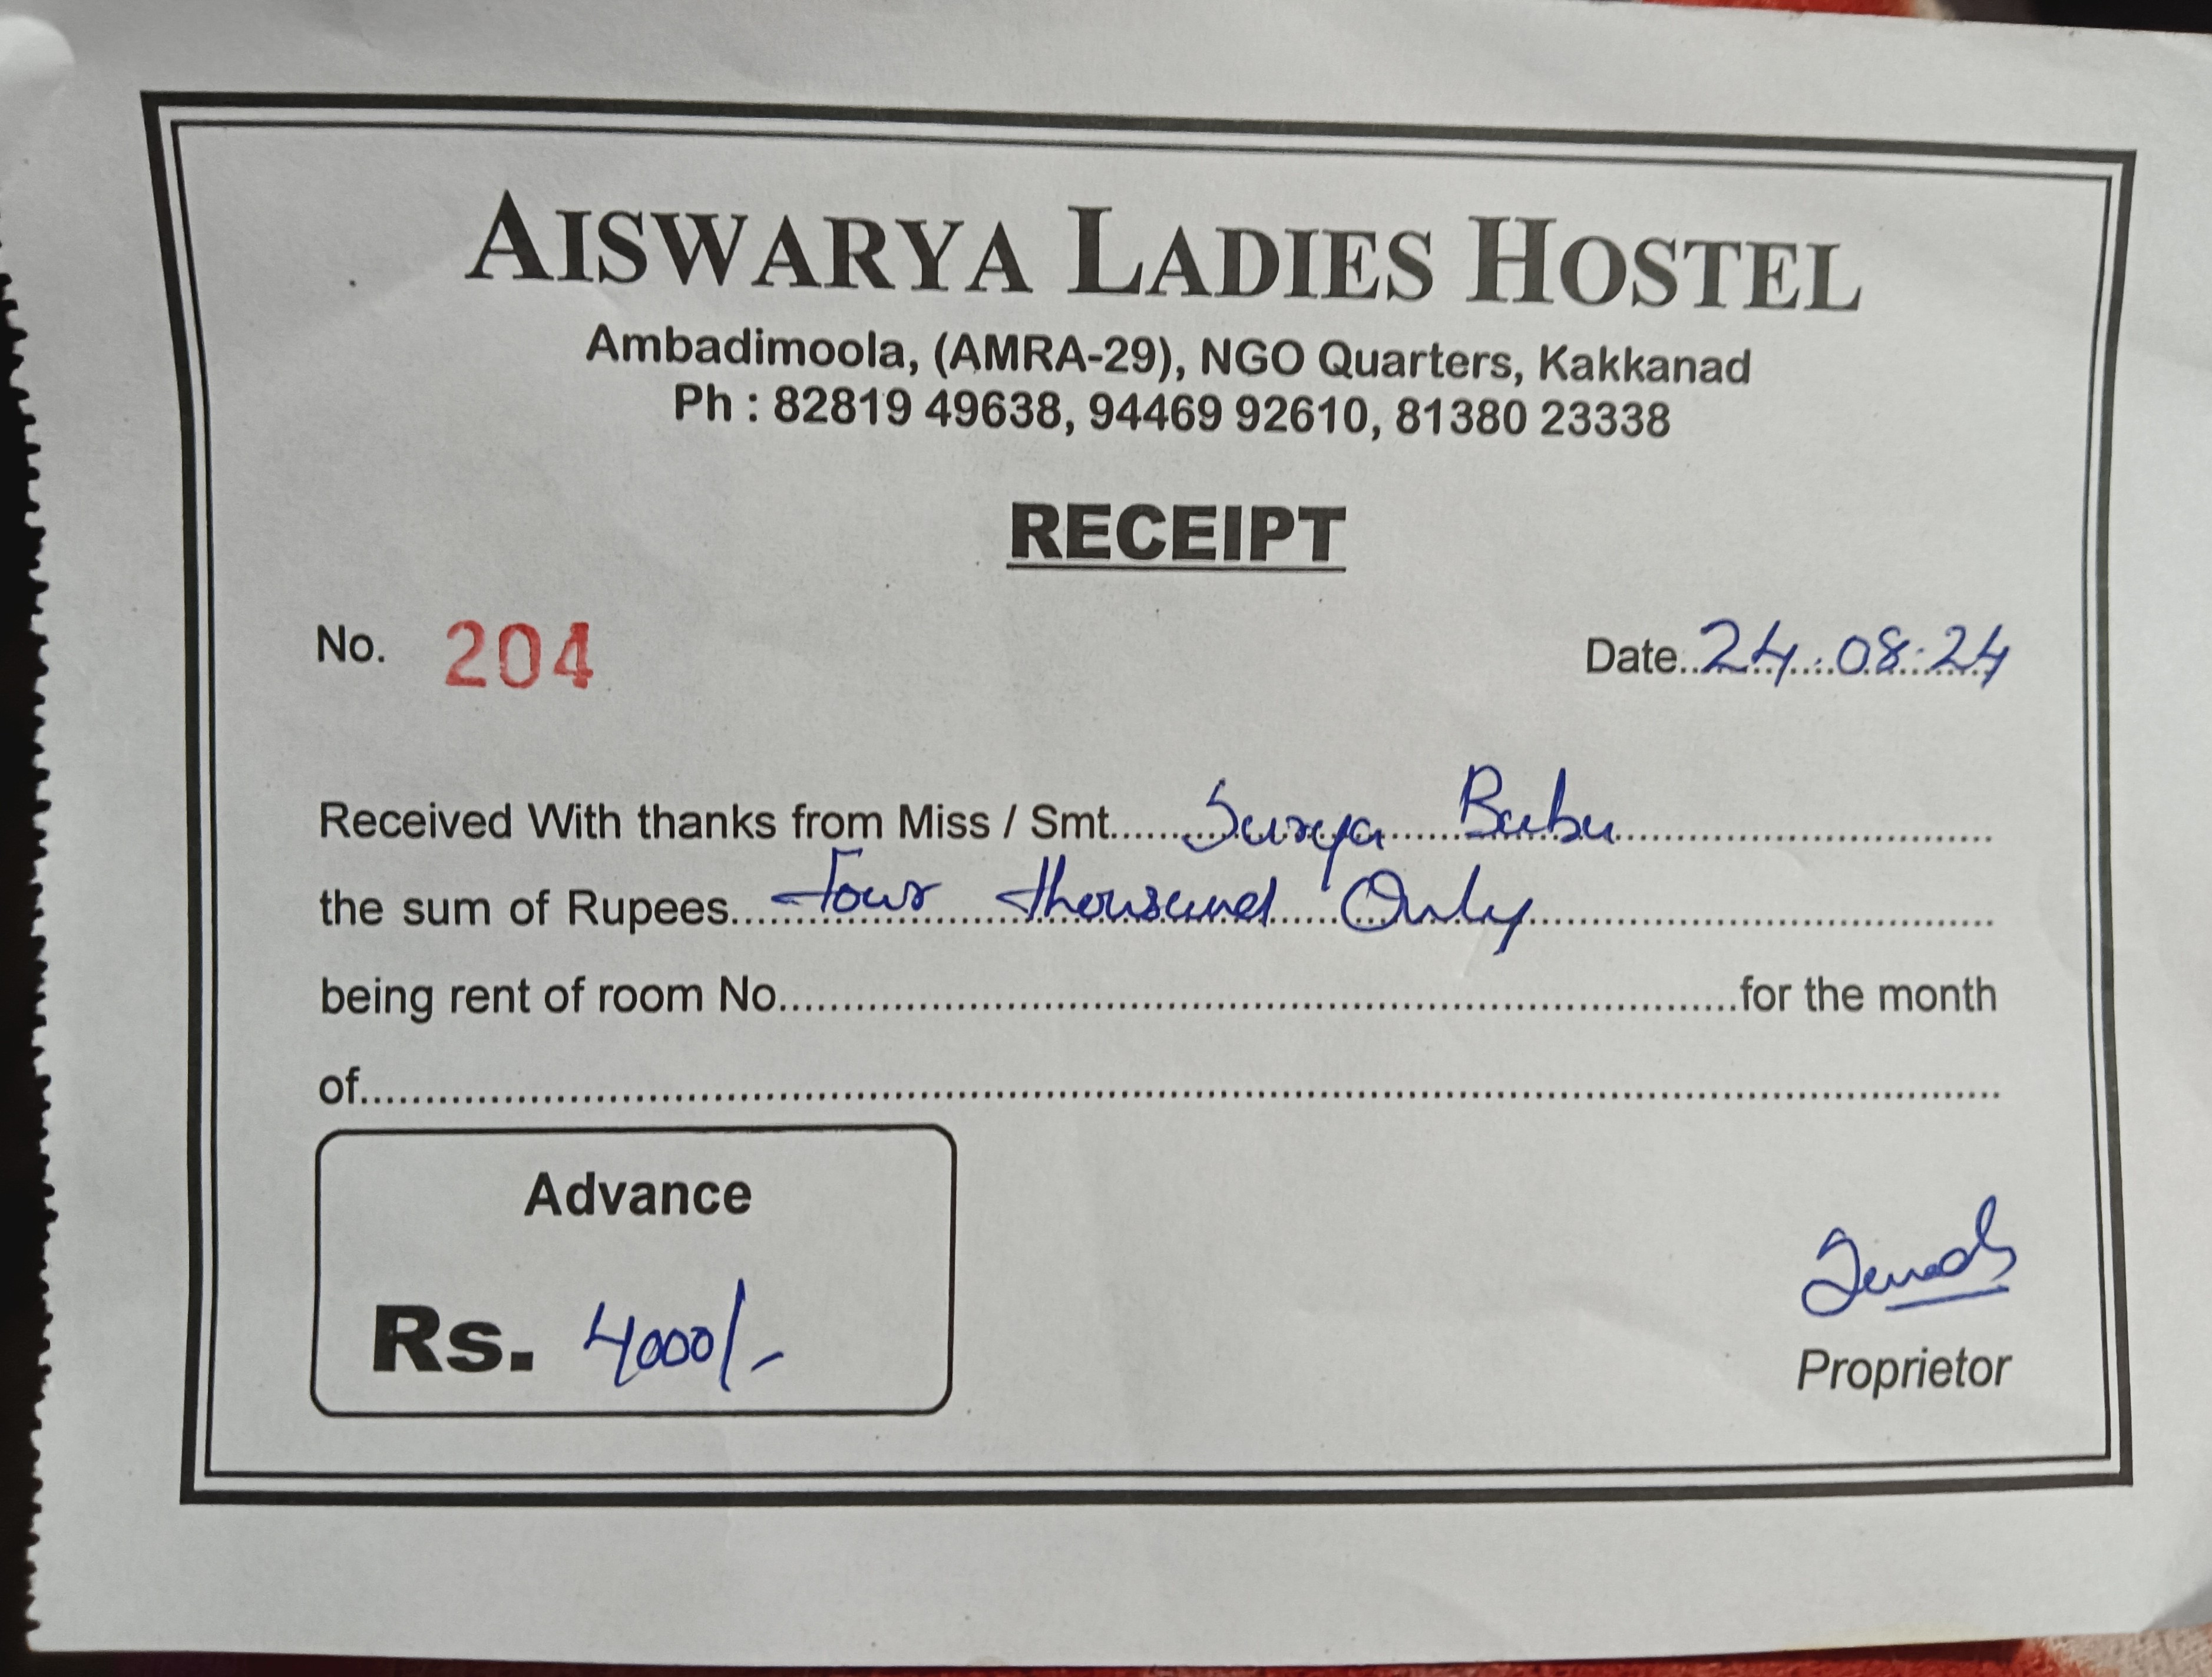 AISWARYA LADIES HOSTEL
Ambadimoola, (AMRA-29), NGO Quarters, Kakkanad
Ph : 82819 49638, 94469 92610, 81380 23338
RECEIPT
No. 204 Date..24..:.08:.24
Received With thanks from Miss / Smt......Surya......Babu..............................
the sum of Rupees....Four....thousand....Only..............................
being rent of room No..............................for the month
of............................................................
Advance
Rs. 4000/-
Proprietor